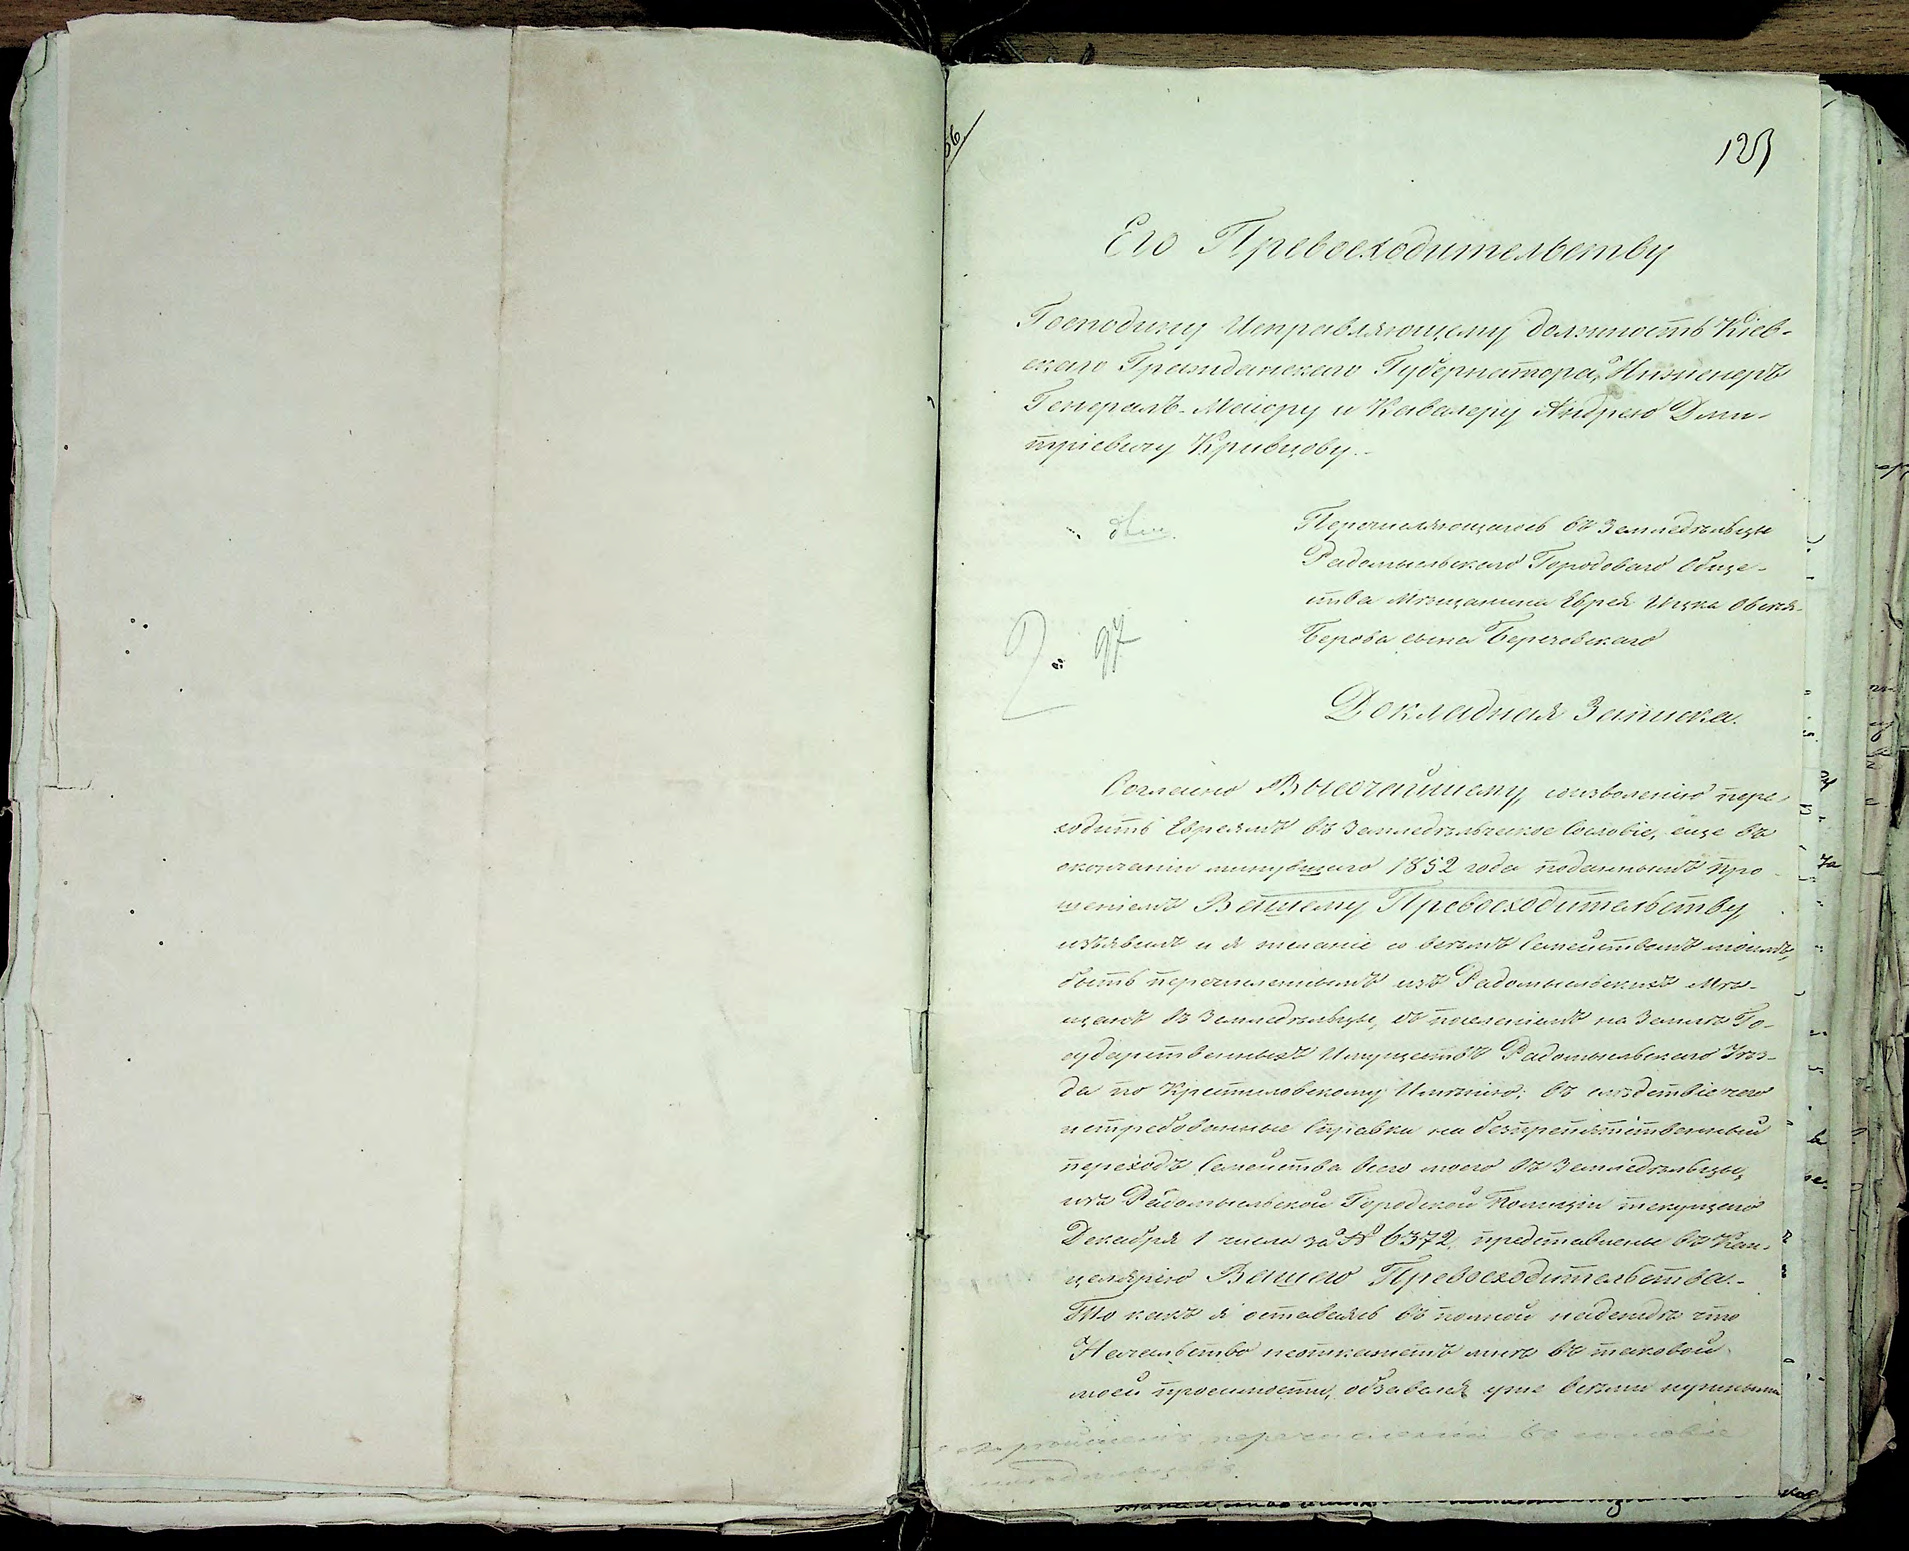 123
Его Превосходительству
Господину Исправляющему должность Кіев-
скаго Гражданскаго Губернатора, Инженеръ
Генералъ-Маіору и Кавалеру Андрею Дми-
тріевичу Кривцову.-
Перечисляющагось въ Земледѣльцы
Радомысльскаго Городоваго Обще-
ства Мѣщанина Еврея Ицка
Берова сына Беричевскаго
Докладная Записка.
Согласно Высочайшему, соизволенію пере-
ходить Евреямъ въ Земледѣльческое Сословіе, еще въ
окончаніи минувшаго 1852 года поданнымъ про-
шеніемъ Вашему Превосходительству,
изъявилъ и я желаніе со всѣмъ Семействомъ моимъ,
быть перечисленнымъ изъ Радомысльскихъ Мѣ-
щанъ въ Земледѣльцы, съ поселеніемъ на Землѣ Го-
сударственныхъ Имуществъ Радомысльскаго Уѣз-
да по Имѣнію; въ слѣдствіе чего
истребованные Справки на безпрепятственный
переходъ Семейства всего моего въ Земледѣльцы,
изъ Радомысльской Городской Полиціи текущаго
Декабря 1 числа за № 6372, представлены въ Кан-
целярію Вашего Превосходительства.-
То какъ я оставаясь въ полной надеждѣ что
Начальство неоткажетъ мнѣ въ таковой
моей просимости, обзавелся уже всѣми нужными
перечисленіи въ сословіе